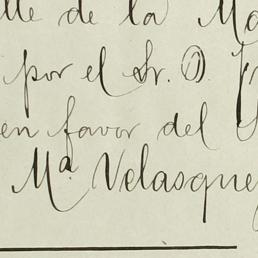 lle de la Ma
por el Sr. D. Fr
en favor del S
Mª Velasque